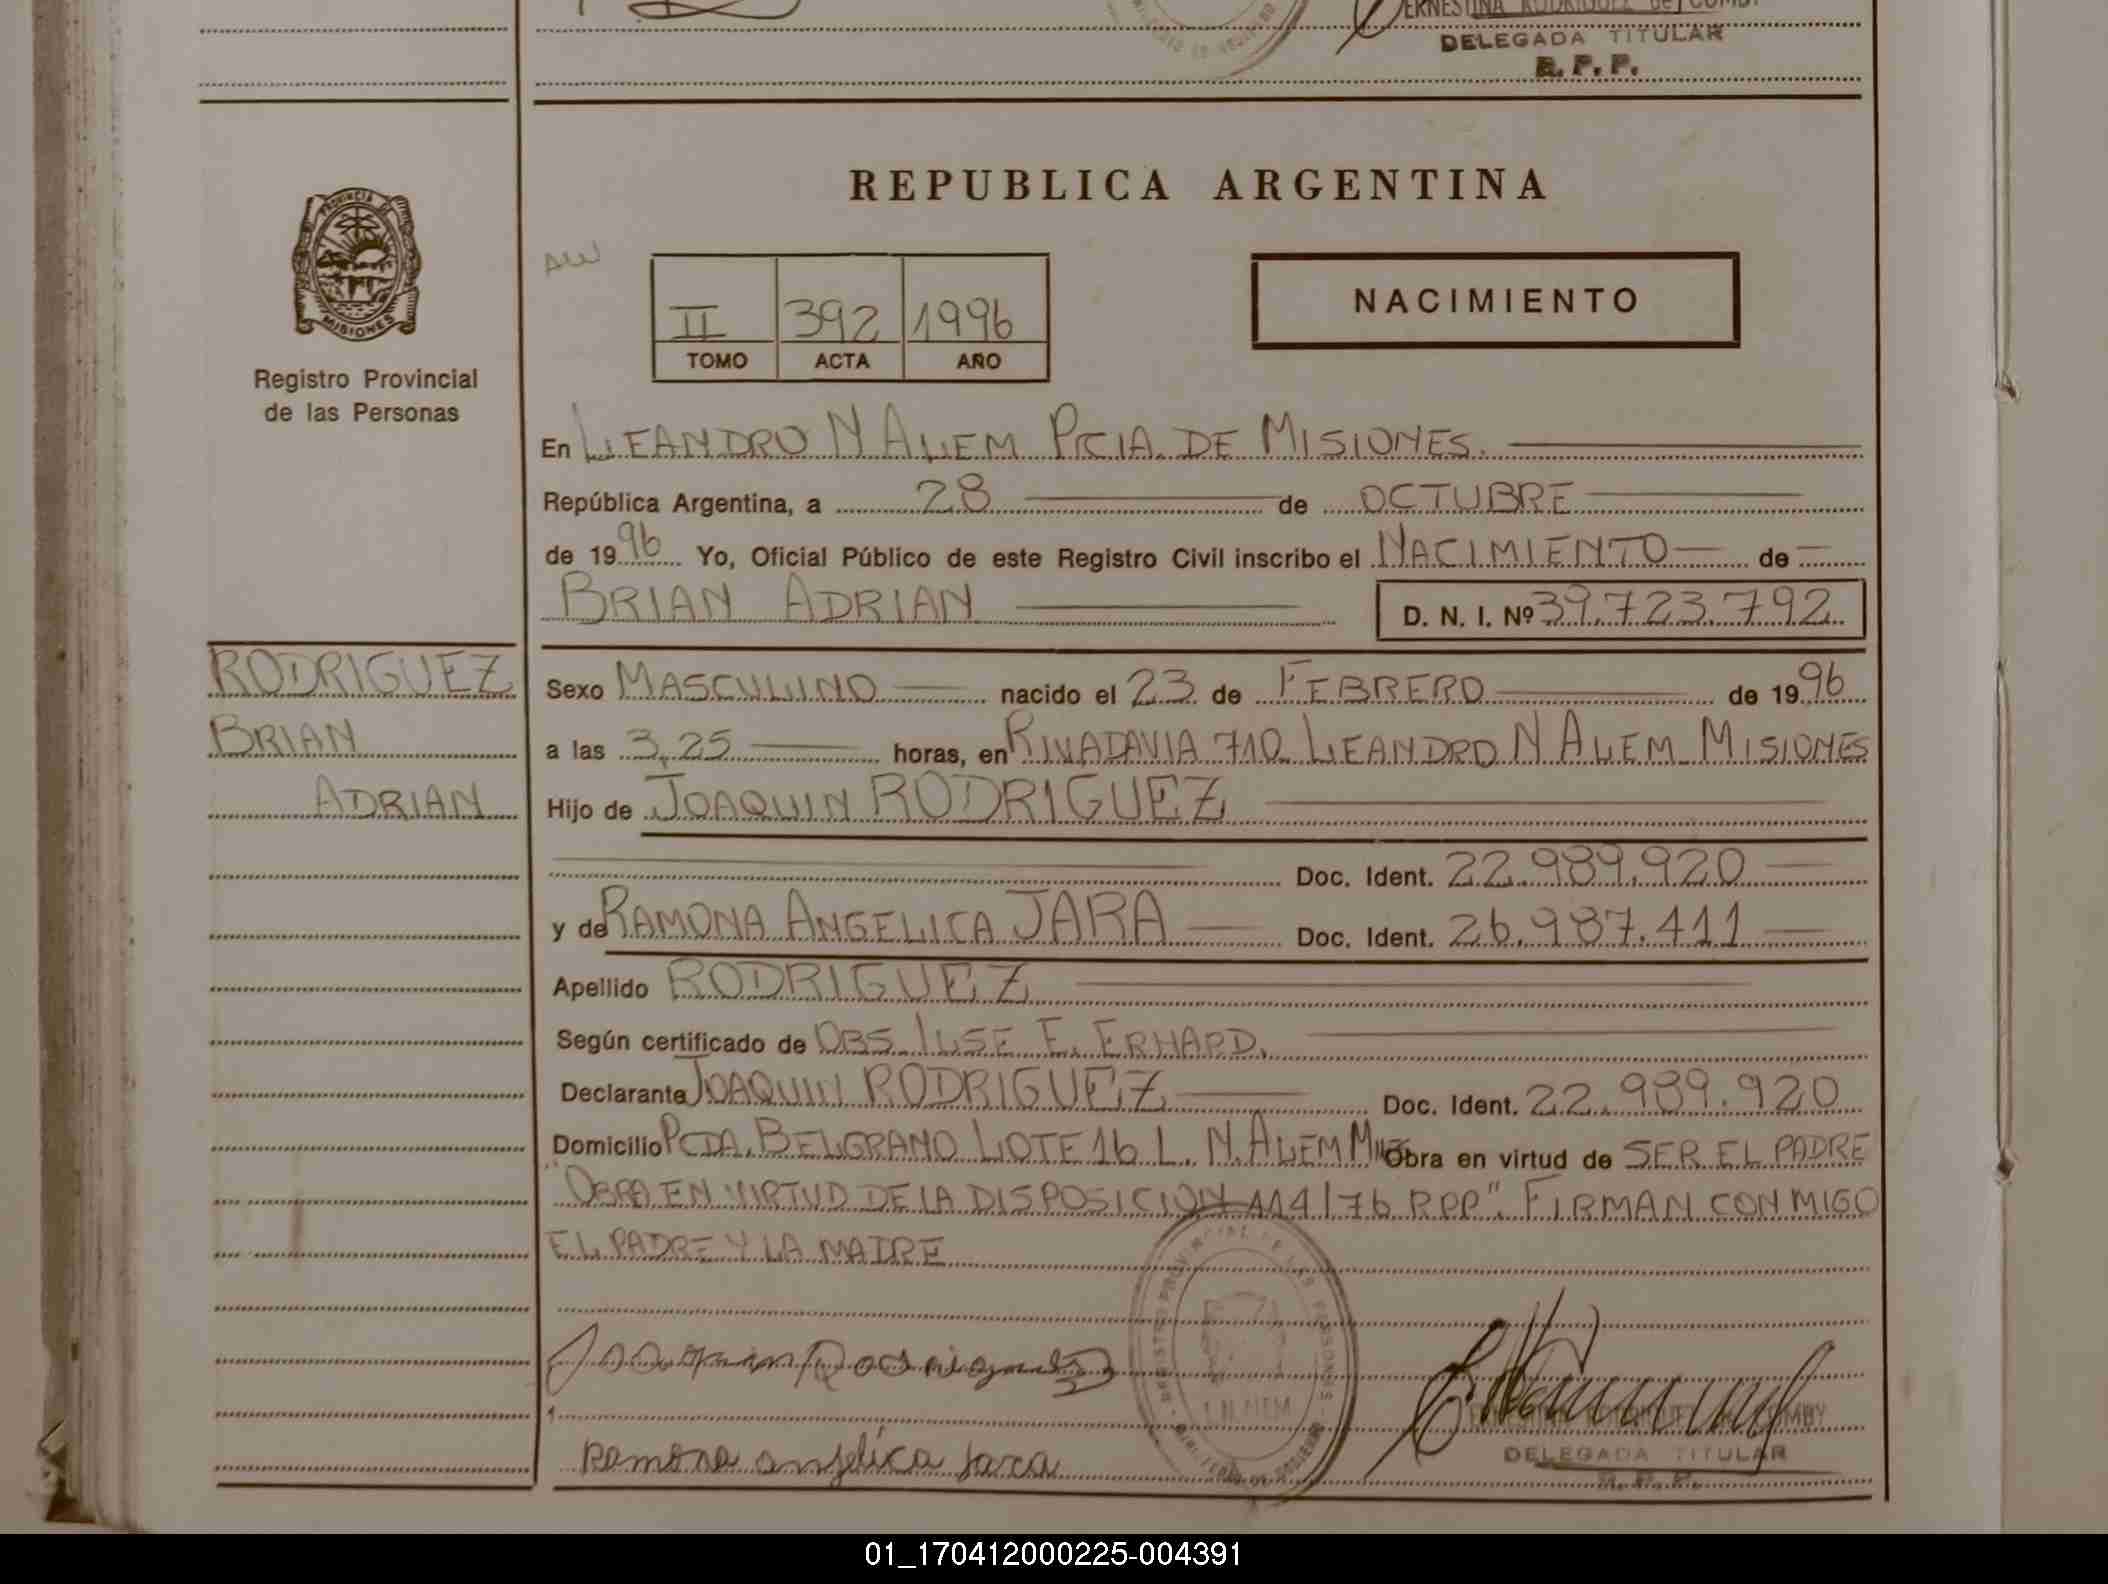 ERNESTINA RODRIGUEZ de COMBY
DELEGADA TITULAR
R. P. P.
PROVINCIA DE
MISIONES
Registro Provincial
de las Personas
REPUBLICA ARGENTINA
II 392 1996
TOMO ACTA AÑO
NACIMIENTO
En LEANDRO N ALEM PCIA. DE MISIONES.
República Argentina, a 28 de OCTUBRE
de 1996 Yo, Oficial Público de este Registro Civil inscribo el NACIMIENTO de
BRIAN ADRIAN D. N. I. Nº 39.723.792
RODRIGUEZ
BRIAN
ADRIAN
Sexo MASCULINO nacido el 23 de FEBRERO de 1996
a las 3,25 horas, en RIVADAVIA 710 LEANDRO N ALEM MISIONES
Hijo de JOAQUIN RODRIGUEZ
Doc. Ident. 22.989.920
y de RAMONA ANGELICA JARA Doc. Ident. 26.987.411
Apellido RODRIGUEZ
Según certificado de OBS. ILSE E. ERHARD.
Declarante JOAQUIN RODRIGUEZ Doc. Ident. 22.989.920
Domicilio PCDA. BELGRANO LOTE 16 L. N. ALEM Mnes Obra en virtud de SER EL PADRE
"OBRA EN VIRTUD DE LA DISPOSICION 114/76 RPP". FIRMAN CONMIGO
EL PADRE Y LA MADRE
Joaquin Rodriguez
REGISTRO PROVINCIAL DE LAS PERSONAS
L.N. ALEM
Ramona angelica Jara
ERNESTINA RODRIGUEZ de COMBY
DELEGADA TITULAR
R. P. P.
01_170412000225-004391